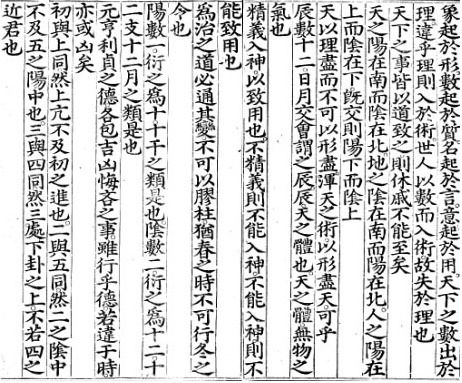 象起於形數起於質名起於言意起於用天下之數出於
理違乎理則入於術世人以數而入術故失於理也
天下之事皆以道致之則休戚不能至矣
天之陽在南而陰在北地之陰在南而陽在北人之陽在
上而陰在下旣交則陽下而陰上
天以理盡而不可以形盡渾天之術以形盡天可乎
辰數十二日月交會謂之辰辰天之體也天之體無物之
氣也
精義入神以致用也不精義則不能入神不能入神則不
能致用也
爲治之道必通其變不可以膠柱猶春之時不可行冬之
令也
陽數一衍之爲十十干之類是也陰數二衍之爲十二十
二支十二月之類是也
元亨利貞之德各包吉凶悔吝之事雖行乎德若違于時
亦或凶矣
初與上同然上亢不及初之進也二與五同然二之陰中
不及五之陽中也三與四同然三處下卦之上不若四之
近君也